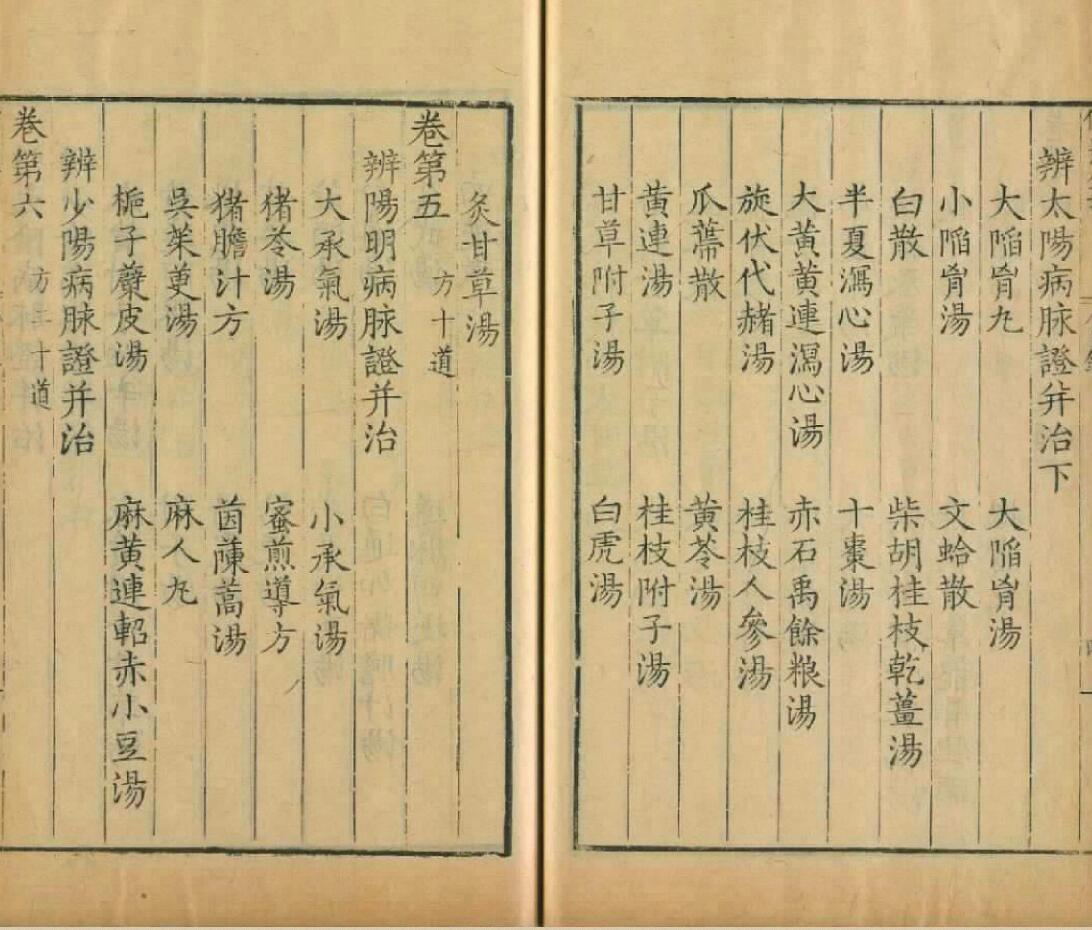 辨太陽病脉證并治下
大陷胷丸 大陷胷湯
小陷胷湯 文蛤散
白散 柴胡桂枝乾薑湯
半夏瀉心湯 十棗湯
大黄黄連瀉心湯 赤石禹餘粮湯
旋伏代赭湯 桂枝人參湯
瓜蔕散 黄芩湯
黄連湯 桂枝附子湯
甘草附子湯 白虎湯
炙甘草湯
卷第五 方十道
辨陽明病脉證并治
大承氣湯 小承氣湯
猪苓湯 蜜煎導方
猪膽汁方 茵蔯蒿湯
吳茱萸湯 麻人丸
梔子蘗皮湯 麻黄連軺赤小豆湯
辨少陽病脉證并治
卷第六 方二十道